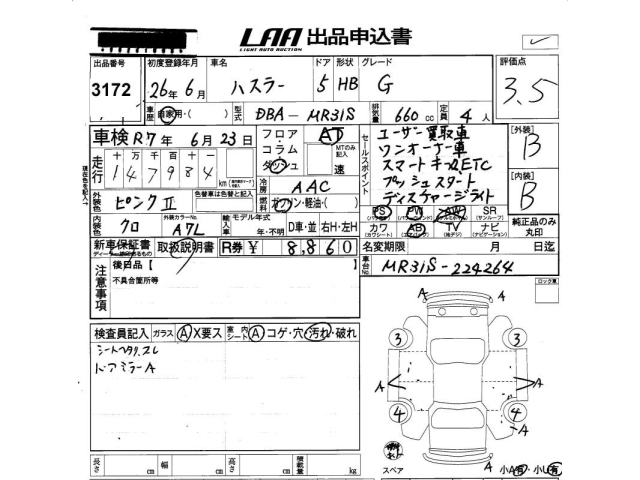 LAA 出品申込書
LIGHT AUTO AUCTION
出品番号 初度登録年月 車名 ドア 形状 グレード 評価点
3172 26年6月 ハスラー 5 HB G 3.5
車歴 自家用・( ) 型式 DBA-MR31S 排気量 660 cc 定員 4 人
車検 R7年 6月 23日 フロア コラム ダッシュ AT MTのみ記入 速
走行 十万 万 千 百 十 一
147984 km
冷房 AAC
燃料 ガソリン・軽油・( )
外装色 ピンクⅡ 色替車は色替と記入
内装色 クロ 外装カラーNo. A7L 輸入車 モデル年式 年・不明 D車・並 右H・左H
新車保証書 取扱説明書 R券 ¥ 8,860
セールスポイント
ユーザー買取車
ワンオーナー車
スマートキー ETC
プッシュスタート
ディスチャージライト
PS PW AW SR
(サンルーフ)
カワ AB TV ナビ
(カワシート) (エアバッグ) (地デジ) (ナビゲーション)
純正品のみ丸印
[外装] B
[内装] B
名変期限 月 日迄
車台No. MR31S-224264
注意事項
後日品【 】
不具合箇所等
ロック車
検査員記入 ガラス A X要ス 室内 シート A コゲ・穴・汚れ・破れ
シートヘタリ.スレ
ドアミラーA
A A
3 3
A A
4 4
A
A
スペア 小A有 小U有
長さ cm 幅 cm 高さ cm 積載量 kg
現在色を記入